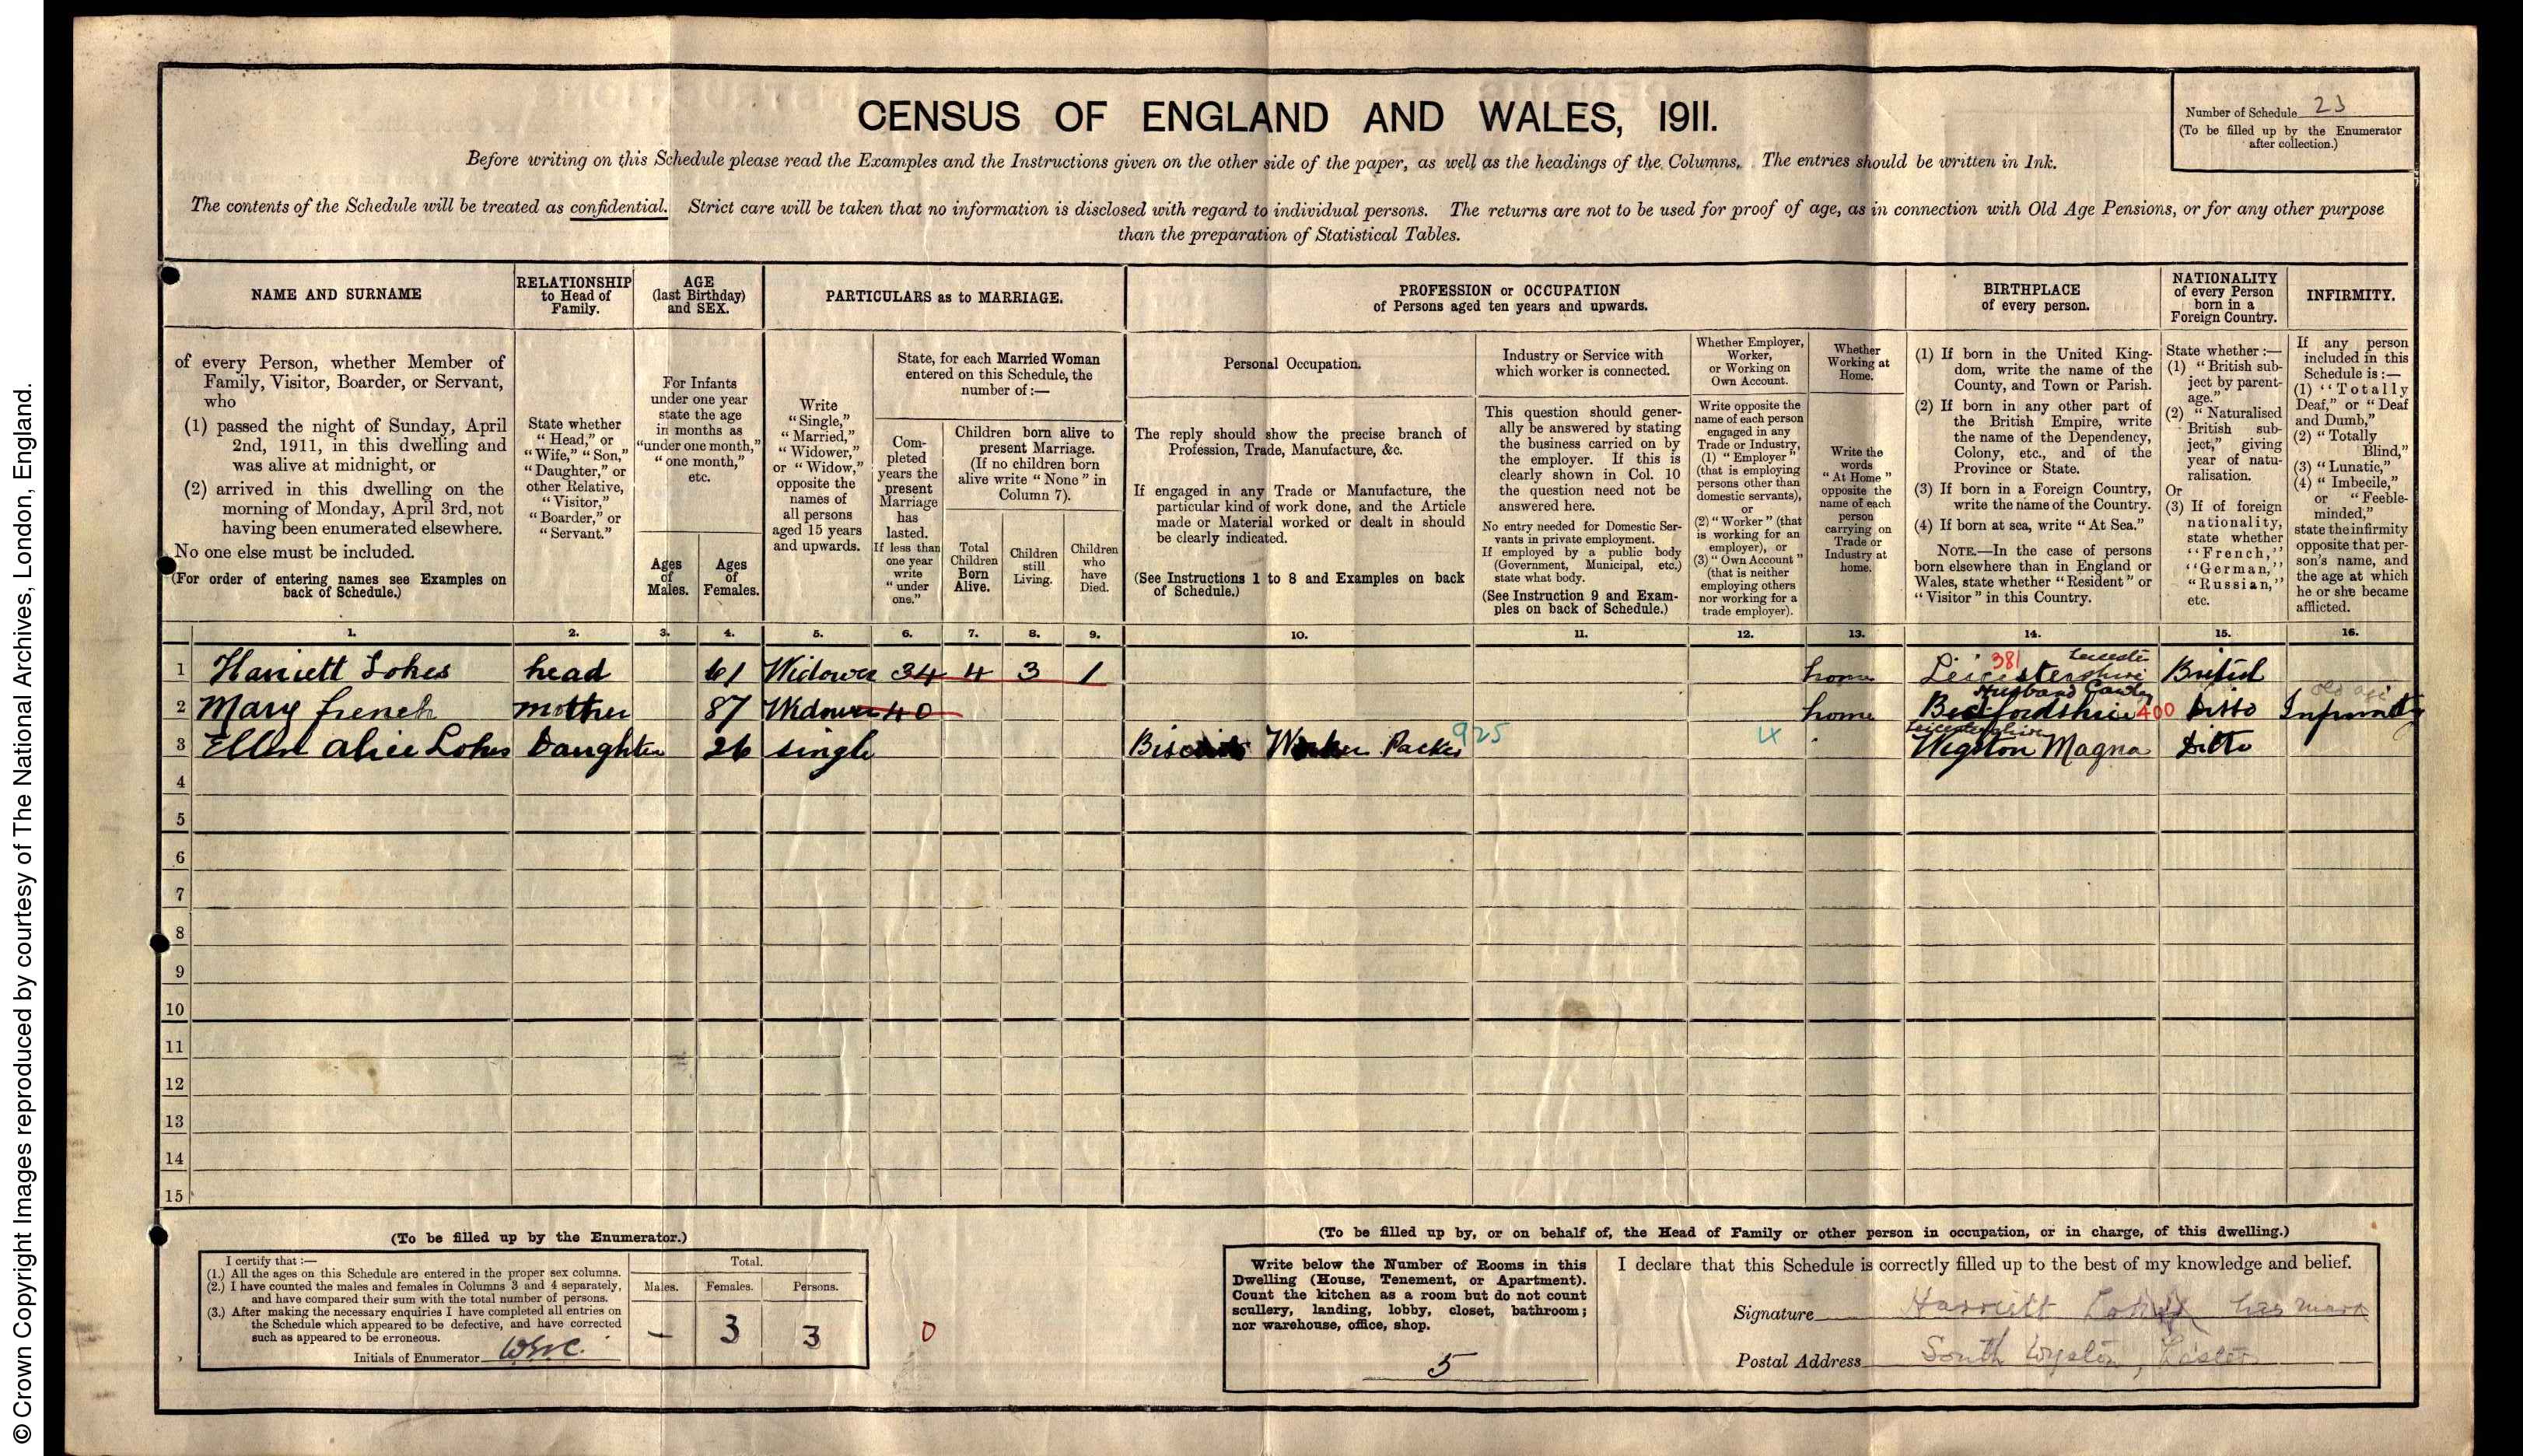 © Crown Copyright Images reproduced by courtesy of The National Archives, London, England.
CENSUS OF ENGLAND AND WALES, 1911.
Number of Schedule 23
(To be filled up by the Enumerator
after collection.)
Before writing on this Schedule please read the Examples and the Instructions given on the other side of the paper, as well as the headings of the Columns. The entries should be written in Ink.
The contents of the Schedule will be treated as confidential. Strict care will be taken that no information is disclosed with regard to individual persons. The returns are not to be used for proof of age, as in connection with Old Age Pensions, or for any other purpose
than the preparation of Statistical Tables.
NAME AND SURNAME
of every Person, whether Member of
Family, Visitor, Boarder, or Servant,
who
(1) passed the night of Sunday, April
2nd, 1911, in this dwelling and
was alive at midnight, or
(2) arrived in this dwelling on the
morning of Monday, April 3rd, not
having been enumerated elsewhere.
No one else must be included.
(For order of entering names see Examples on
back of Schedule.)
RELATIONSHIP
to Head of
Family.
State whether
"Head," or
"Wife," "Son,"
"Daughter," or
other Relative,
"Visitor,"
"Boarder," or
"Servant."
AGE
(last Birthday)
and SEX.
For Infants
under one year
state the age
in months as
"under one month,"
"one month,"
etc.
Ages
of
Males.
Ages
of
Females.
PARTICULARS as to MARRIAGE.
Write
"Single,"
"Married,"
"Widower,"
or "Widow,"
opposite the
names of
all persons
aged 15 years
and upwards.
State, for each Married Woman
entered on this Schedule, the
number of:—
Com-
pleted
years the
present
Marriage
has
lasted.
If less than
one year
write
"under
one."
Children born alive to
present Marriage.
(If no children born
alive write "None" in
Column 7).
Total
Children
Born
Alive.
Children
still
Living.
Children
who
have
Died.
PROFESSION or OCCUPATION
of Persons aged ten years and upwards.
Personal Occupation.
The reply should show the precise branch of
Profession, Trade, Manufacture, &c.
If engaged in any Trade or Manufacture, the
particular kind of work done, and the Article
made or Material worked or dealt in should
be clearly indicated.
(See Instructions 1 to 8 and Examples on back
of Schedule.)
Industry or Service with
which worker is connected.
This question should gener-
ally be answered by stating
the business carried on by
the employer. If this is
clearly shown in Col. 10
the question need not be
answered here.
No entry needed for Domestic Ser-
vants in private employment.
If employed by a public body
(Government, Municipal, etc.)
state what body.
(See Instruction 9 and Exam-
ples on back of Schedule.)
Whether Employer,
Worker,
or Working on
Own Account.
Write opposite the
name of each person
engaged in any
Trade or Industry,
(1) "Employer"
(that is employing
persons other than
domestic servants),
or
(2) "Worker" (that
is working for an
employer), or
(3) "Own Account"
(that is neither
employing others
nor working for a
trade employer).
Whether
Working at
Home.
Write the
words
"At Home"
opposite the
name of each
person
carrying on
Trade or
Industry at
home.
BIRTHPLACE
of every person.
(1) If born in the United King-
dom, write the name of the
County, and Town or Parish.
(2) If born in any other part of
the British Empire, write
the name of the Dependency,
Colony, etc., and of the
Province or State.
(3) If born in a Foreign Country,
write the name of the Country.
(4) If born at sea, write "At Sea."
NOTE.—In the case of persons
born elsewhere than in England or
Wales, state whether "Resident" or
"Visitor" in this Country.
NATIONALITY
of every Person
born in a
Foreign Country.
State whether:—
(1) "British sub-
ject by parent-
age."
(2) "Naturalised
British sub-
ject," giving
year of natu-
ralisation.
Or
(3) If of foreign
nationality,
state whether
"French,"
"German,"
"Russian,"
etc.
INFIRMITY.
If any person
included in this
Schedule is:—
(1) "Totally
Deaf," or "Deaf
and Dumb,"
(2) "Totally
Blind,"
(3) "Lunatic,"
(4) "Imbecile,"
or "Feeble-
minded,"
state the infirmity
opposite that per-
son's name, and
the age at which
he or she became
afflicted.
1. 2. 3. 4. 5. 6. 7. 8. 9. 10. 11. 12. 13. 14. 15. 16.
1 Harriett Lokes head 61 Widower 34 4 3 1 home 381 Leicester Leicestershire British
2 Mary french mother 87 Widower 40 home Husband Bedfordshire 400 Ditto old age Infirmity
3 Ellen Alice Lokes Daughter 26 single Biscuit Worker Packer 925 Leicestershire Wigston Magna Ditto
4
5
6
7
8
9
10
11
12
13
14
15
(To be filled up by the Enumerator.)
I certify that:—
(1.) All the ages on this Schedule are entered in the proper sex columns.
(2.) I have counted the males and females in Columns 3 and 4 separately,
and have compared their sum with the total number of persons.
(3.) After making the necessary enquiries I have completed all entries on
the Schedule which appeared to be defective, and have corrected
such as appeared to be erroneous.
Initials of Enumerator
Total.
Males. Females. Persons.
– 3 3
0
(To be filled up by, or on behalf of, the Head of Family or other person in occupation, or in charge, of this dwelling.)
Write below the Number of Rooms in this
Dwelling (House, Tenement, or Apartment).
Count the kitchen as a room but do not count
scullery, landing, lobby, closet, bathroom;
nor warehouse, office, shop.
5
I declare that this Schedule is correctly filled up to the best of my knowledge and belief.
Signature Harriett Lokes X her mark
Postal Address South Wigston,